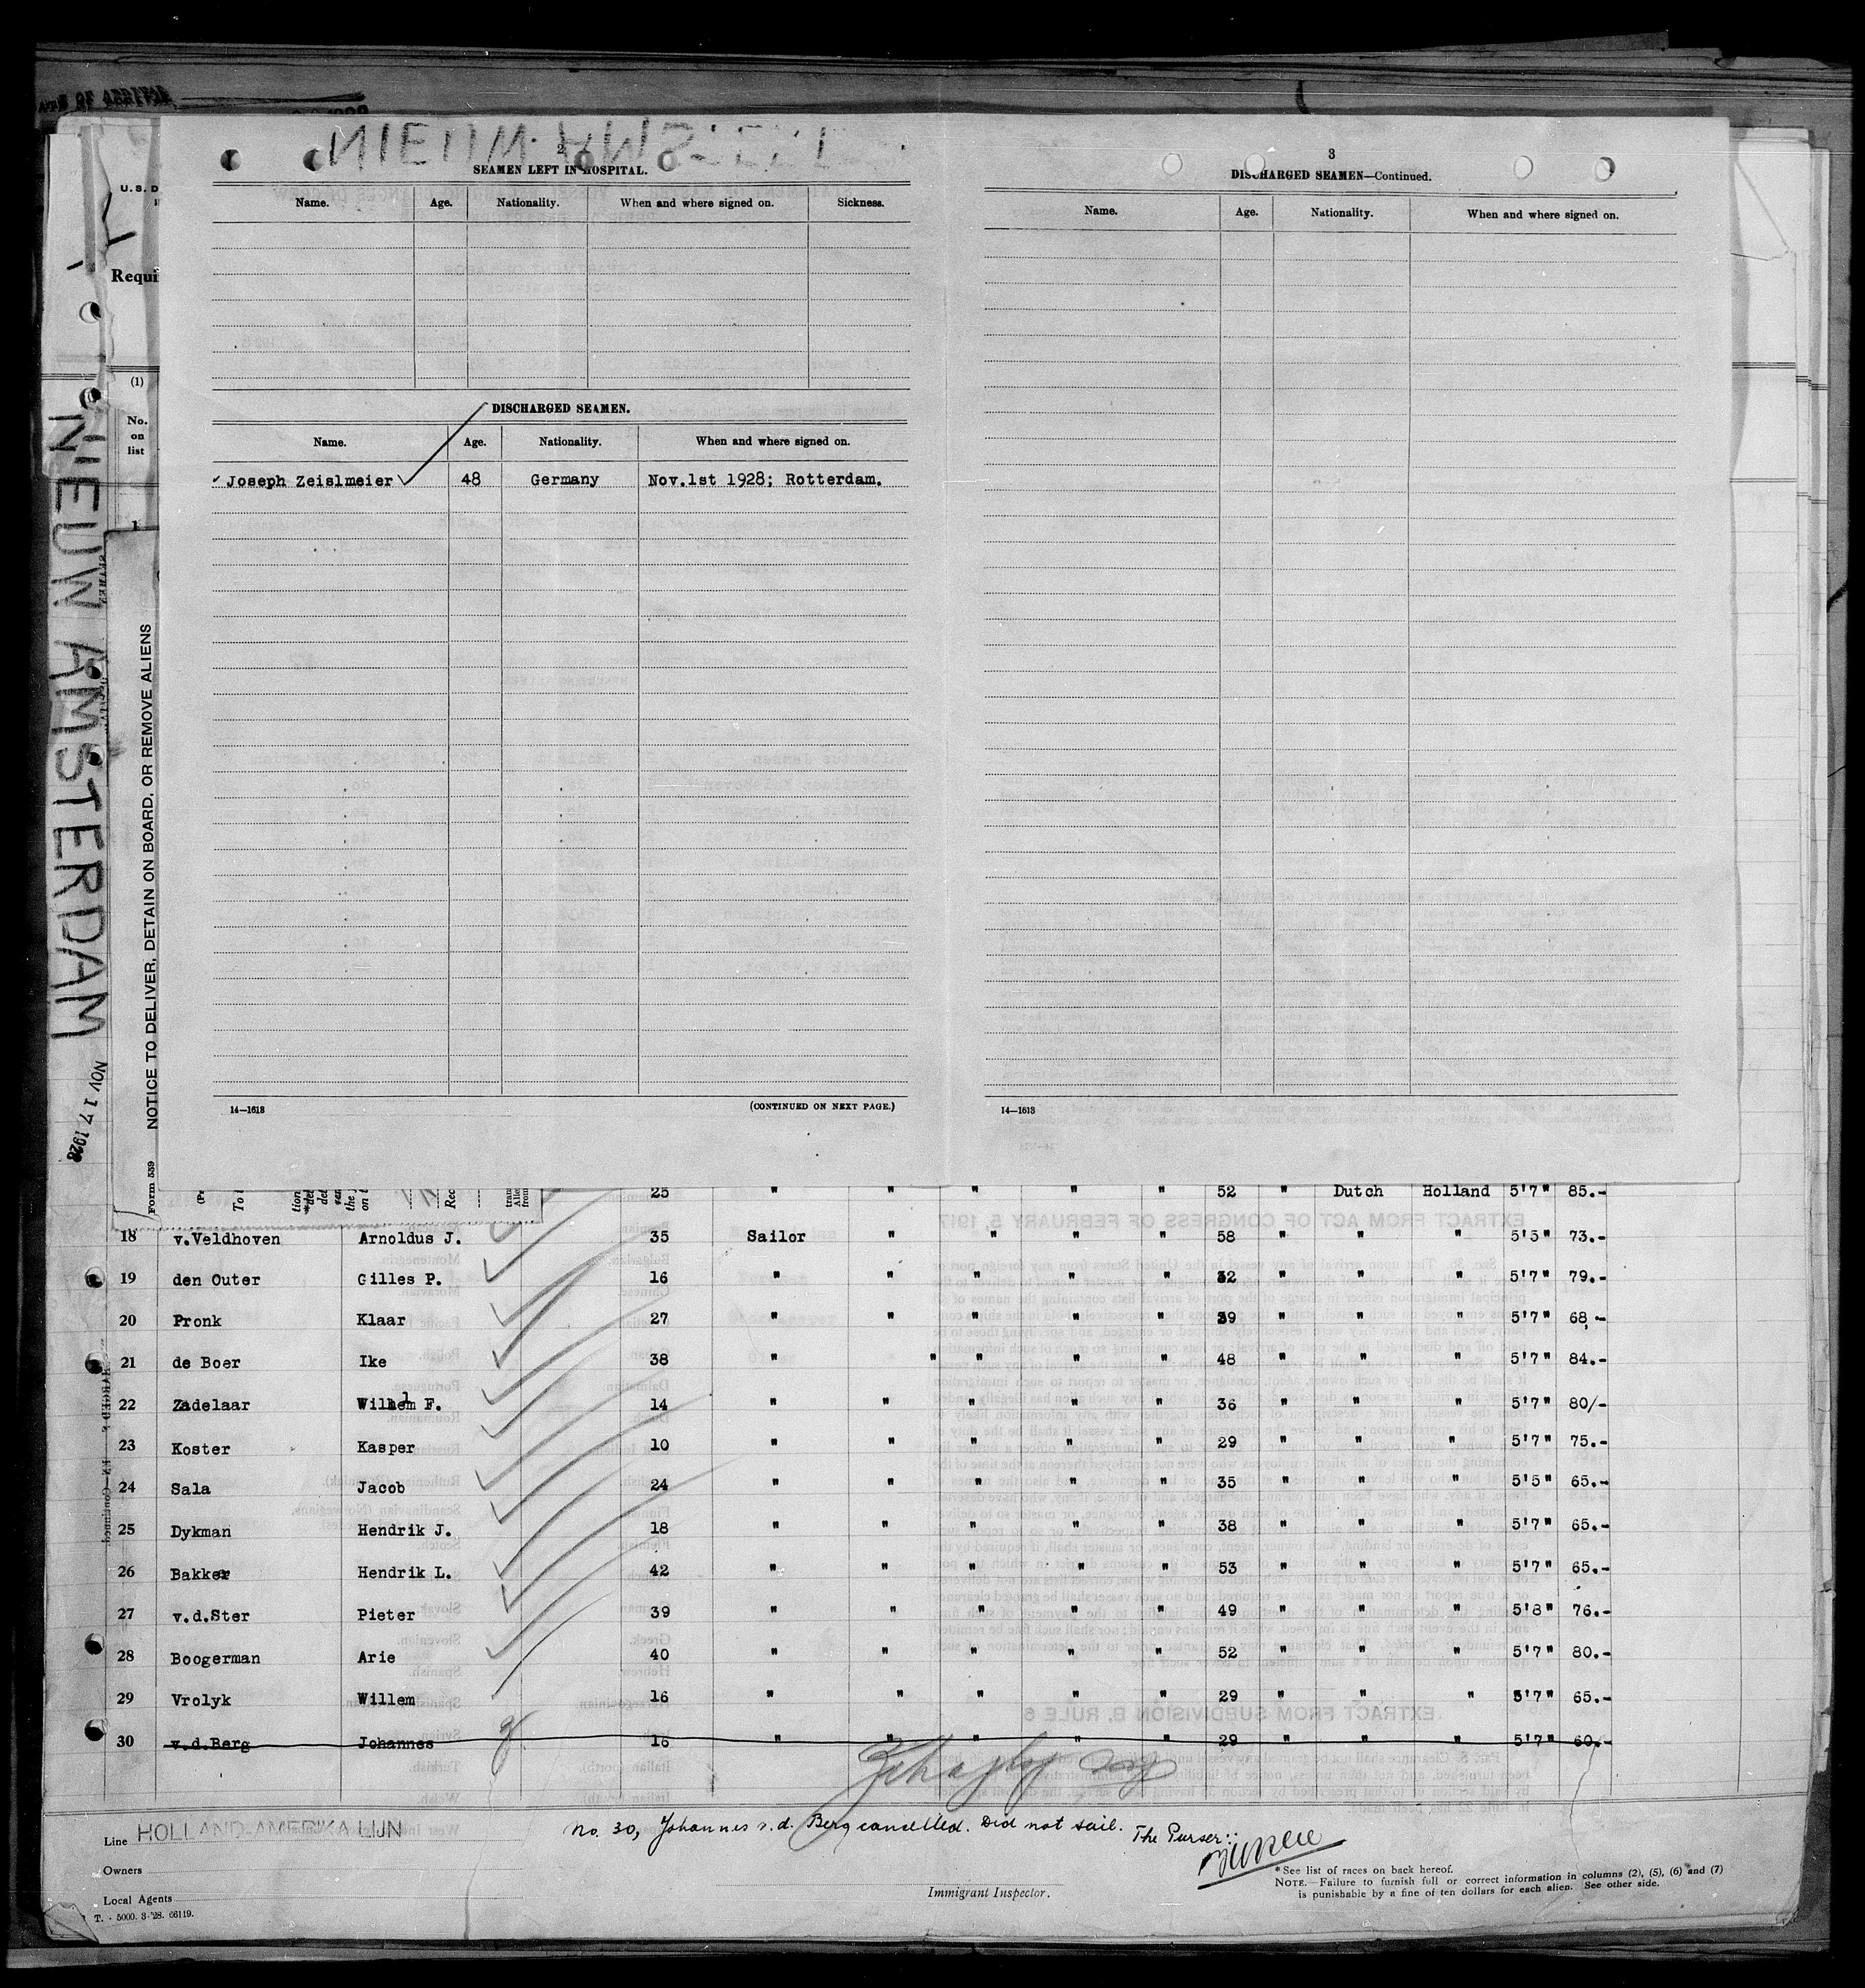 NIEUW AMSTERDAM
NOV 17 1928
U.S. D
Requi
(1)
No.
on
list
1
NOTICE TO DELIVER, DETAIN ON BOARD, OR REMOVE ALIENS
Form 539
2
SEAMEN LEFT IN HOSPITAL.
Name. Age. Nationality. When and where signed on. Sickness.
DISCHARGED SEAMEN.
Name. Age. Nationality. When and where signed on.
Joseph Zeislmeier 48 Germany Nov.1st 1928; Rotterdam.
14—1613 (CONTINUED ON NEXT PAGE.)
3
DISCHARGED SEAMEN—Continued.
Name. Age. Nationality. When and where signed on.
14—1613
25 " " " " " 52 " Dutch Holland 5'7" 85.-
18 v.Veldhoven Arnoldus J. 35 Sailor " " " " 58 " " " 5'5" 73.-
19 den Outer Gilles P. 16 " " " " " 32 " " " 5'7" 79.-
20 Pronk Klaar 27 " " " " " 39 " " " 5'7" 68.-
21 de Boer Ike 38 " " " " " 48 " " " 5'7" 84.-
22 Zadelaar Wilhelm F. 14 " " " " " 36 " " " 5'7" 80/-
23 Koster Kasper 10 " " " " " 29 " " " 5'7" 75.-
24 Sala Jacob 24 " " " " " 35 " " " 5'5" 65.-
25 Dykman Hendrik J. 18 " " " " " 38 " " " 5'7" 65.-
26 Bakker Hendrik L. 42 " " " " " 53 " " " 5'7" 65.-
27 v.d.Ster Pieter 39 " " " " " 49 " " " 5'8" 76.-
28 Boogerman Arie 40 " " " " " 52 " " " 5'7" 80.-
29 Vrolyk Willem 16 " " " " " 29 " " " 5'7" 65.-
30 v.d.Berg Johannes 16 " " " " " 29 " " " 5'7" 60.-
no. 30, Johannes v.d. Berg cancelled. Did not sail. The Purser:
Line HOLLAND-AMERIKA LIJN
Owners
Local Agents
T. - 5000. 3-'28. 66119.
Immigrant Inspector.
*See list of races on back hereof.
NOTE.—Failure to furnish full or correct information in columns (2), (5), (6) and (7)
is punishable by a fine of ten dollars for each alien. See other side.